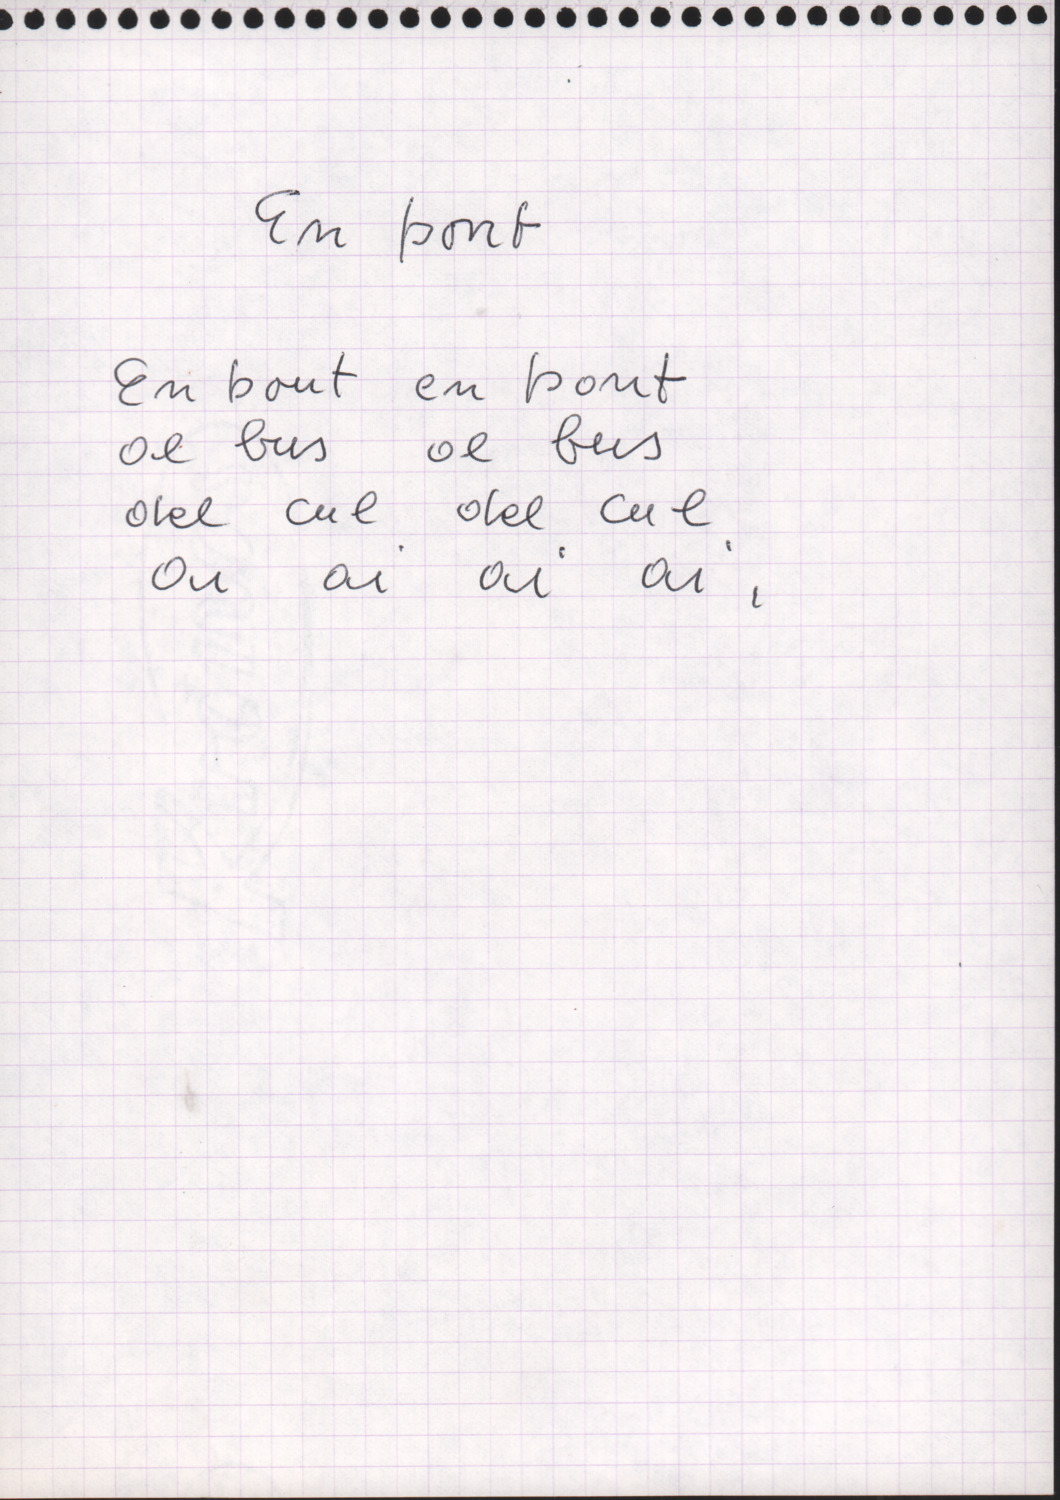 En pont
En pont en pont
de bus de bus
del cul del cul
ai ai ai ai,